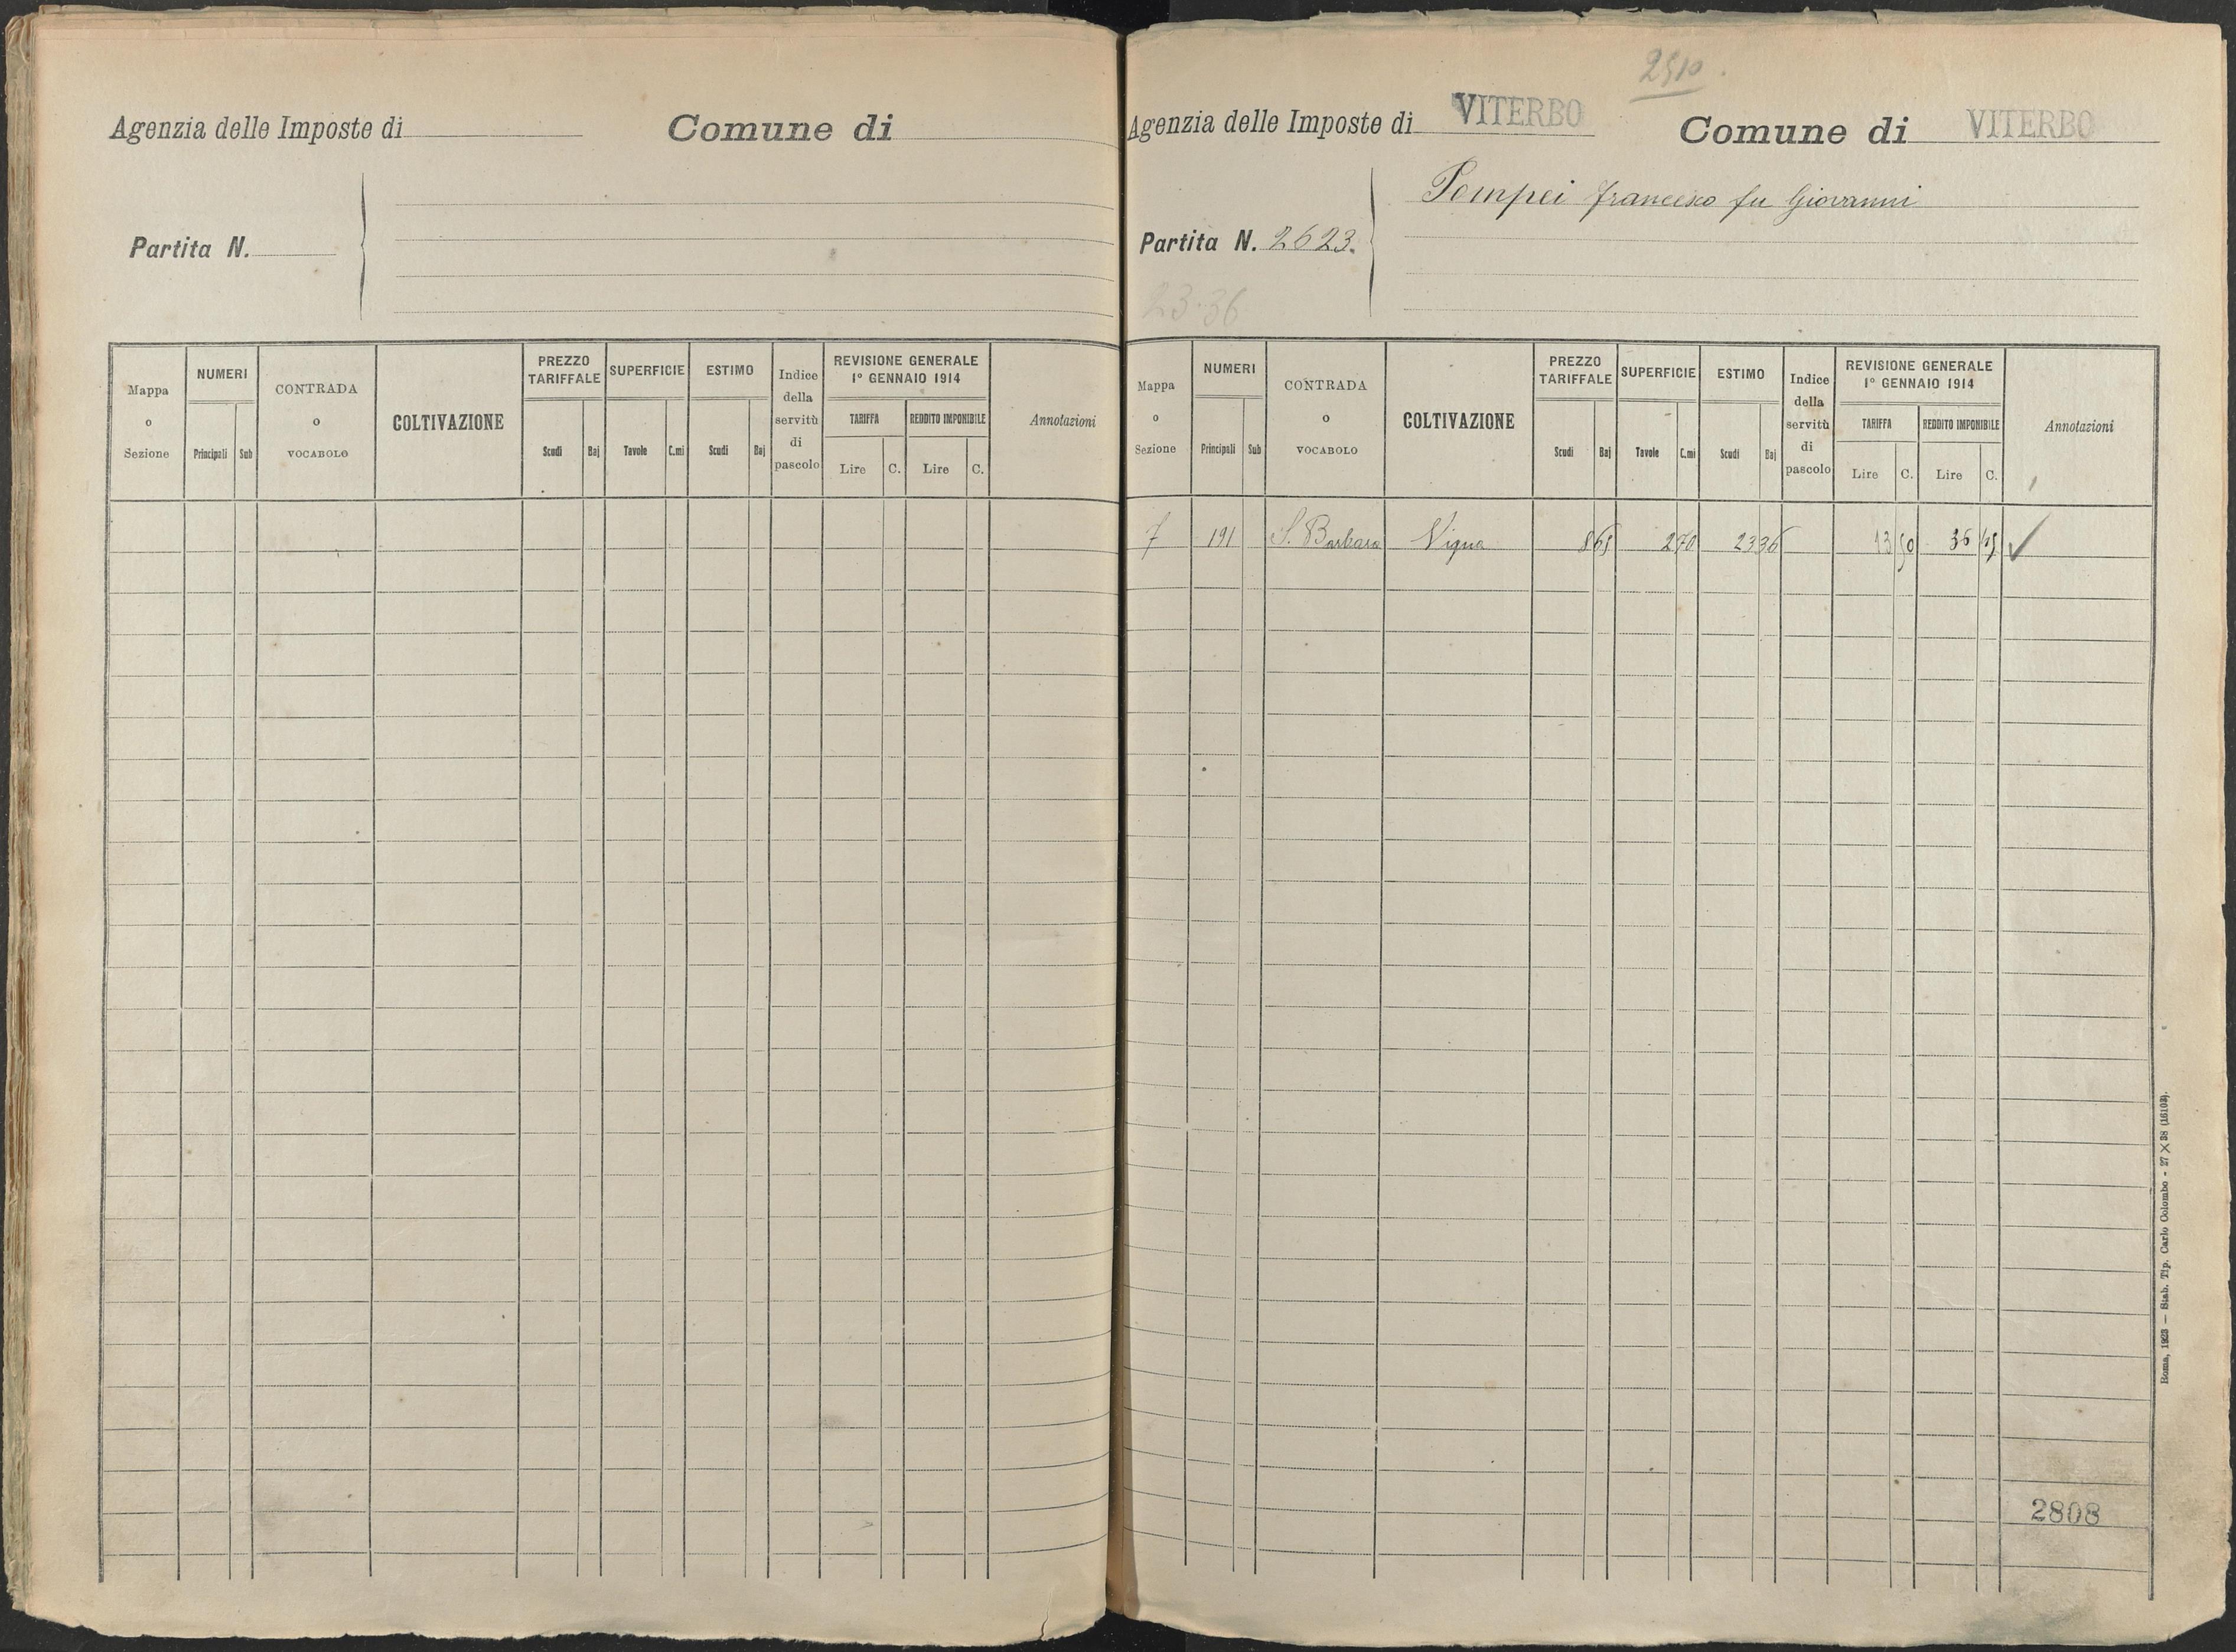 Agenzia delle Imposte di
Comune di
Partita N.
Mappa o Sezione
NUMERI
Principali
Sub
CONTRADA o VOCABOLO
COLTIVAZIONE
PREZZO TARIFFALE
Scudi
Baj
SUPERFICIE
Tavole
C.mi
ESTIMO
Scudi
Baj
Indice della servitù di pascolo
REVISIONE GENERALE
1° GENNAIO 1914
TARIFFA
Lire
C.
REDDITO IMPONIBILE
Lire
C.
Annotazioni
2510.
Agenzia delle Imposte di VITERBO
Comune di VITERBO
Pompei Francesco fu Giovanni
Partita N. 2623.
23.36
Mappa o Sezione
NUMERI
Principali
Sub
CONTRADA o VOCABOLO
COLTIVAZIONE
PREZZO TARIFFALE
Scudi
Baj
SUPERFICIE
Tavole
C.mi
ESTIMO
Scudi
Baj
Indice della servitù di pascolo
REVISIONE GENERALE
1° GENNAIO 1914
TARIFFA
Lire
C.
REDDITO IMPONIBILE
Lire
C.
Annotazioni
7 191 S. Barbara Vigna 8 65 2 70 23 36 13 50 36 45 ✓
2808
Roma, 1923 — Stab. Tip. Carlo Colombo - 27 X 38 (16103).